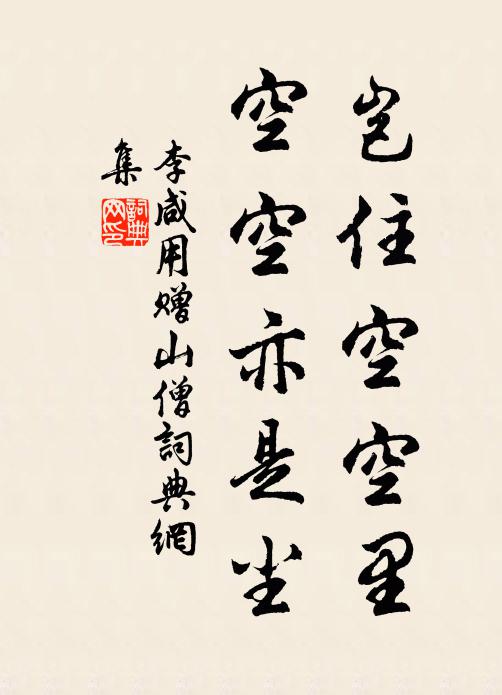 岂住空空里
空空亦是尘
李咸用赠山僧詞典網
集
詞典
网印